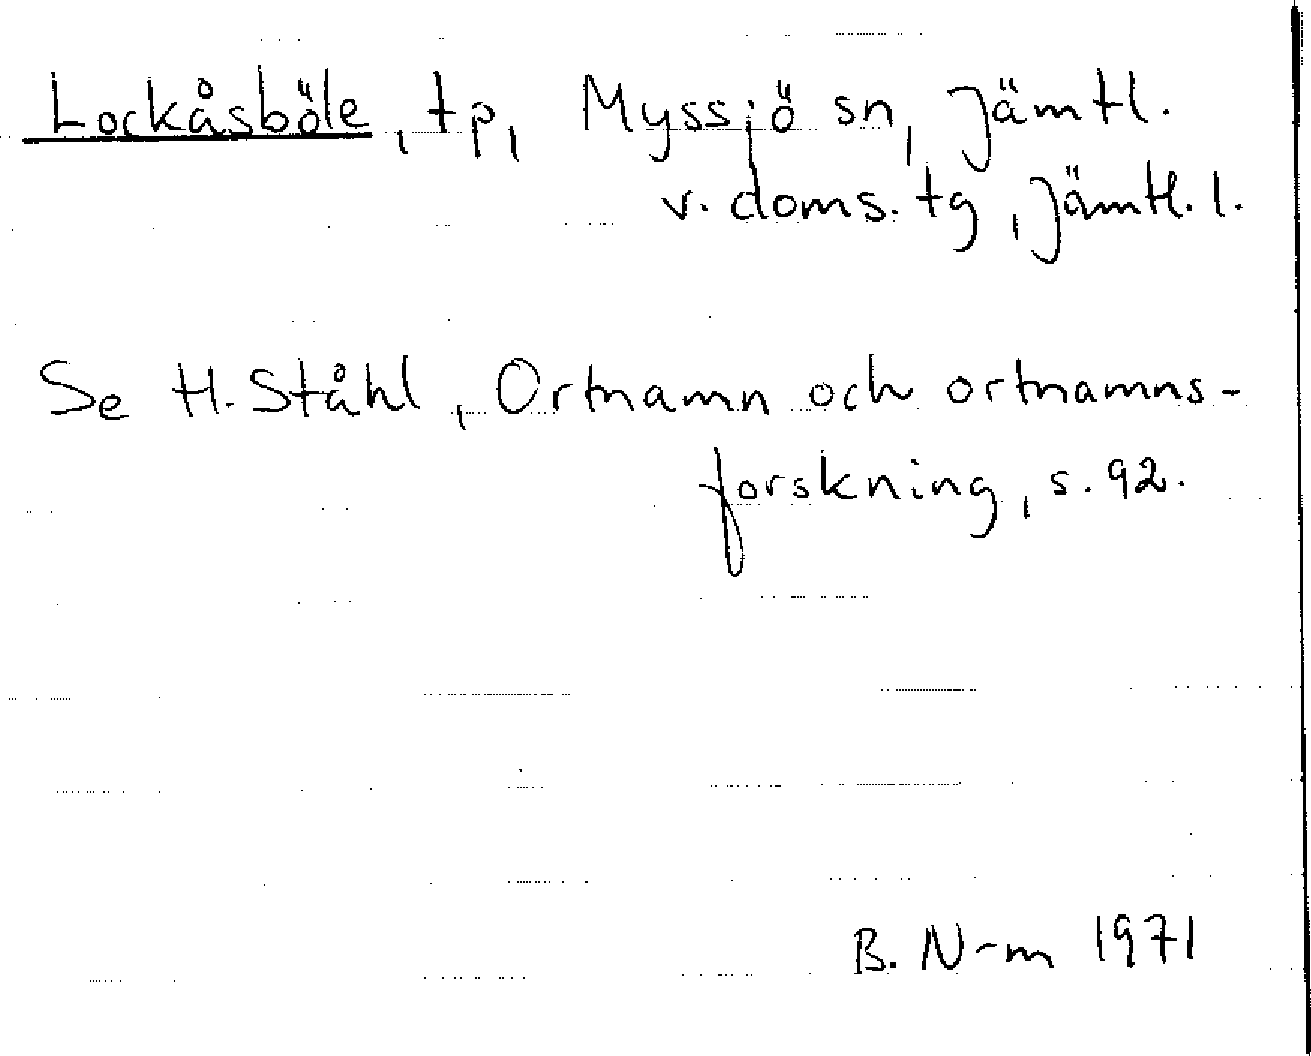 Lockåsböle, tp, Myssjö sn, Jämtl.
v. doms. tg, Jämtl. l.
Se H. Ståhl, Ortnamn och ortnamns-
forskning, s. 92.
B. N-m 1971